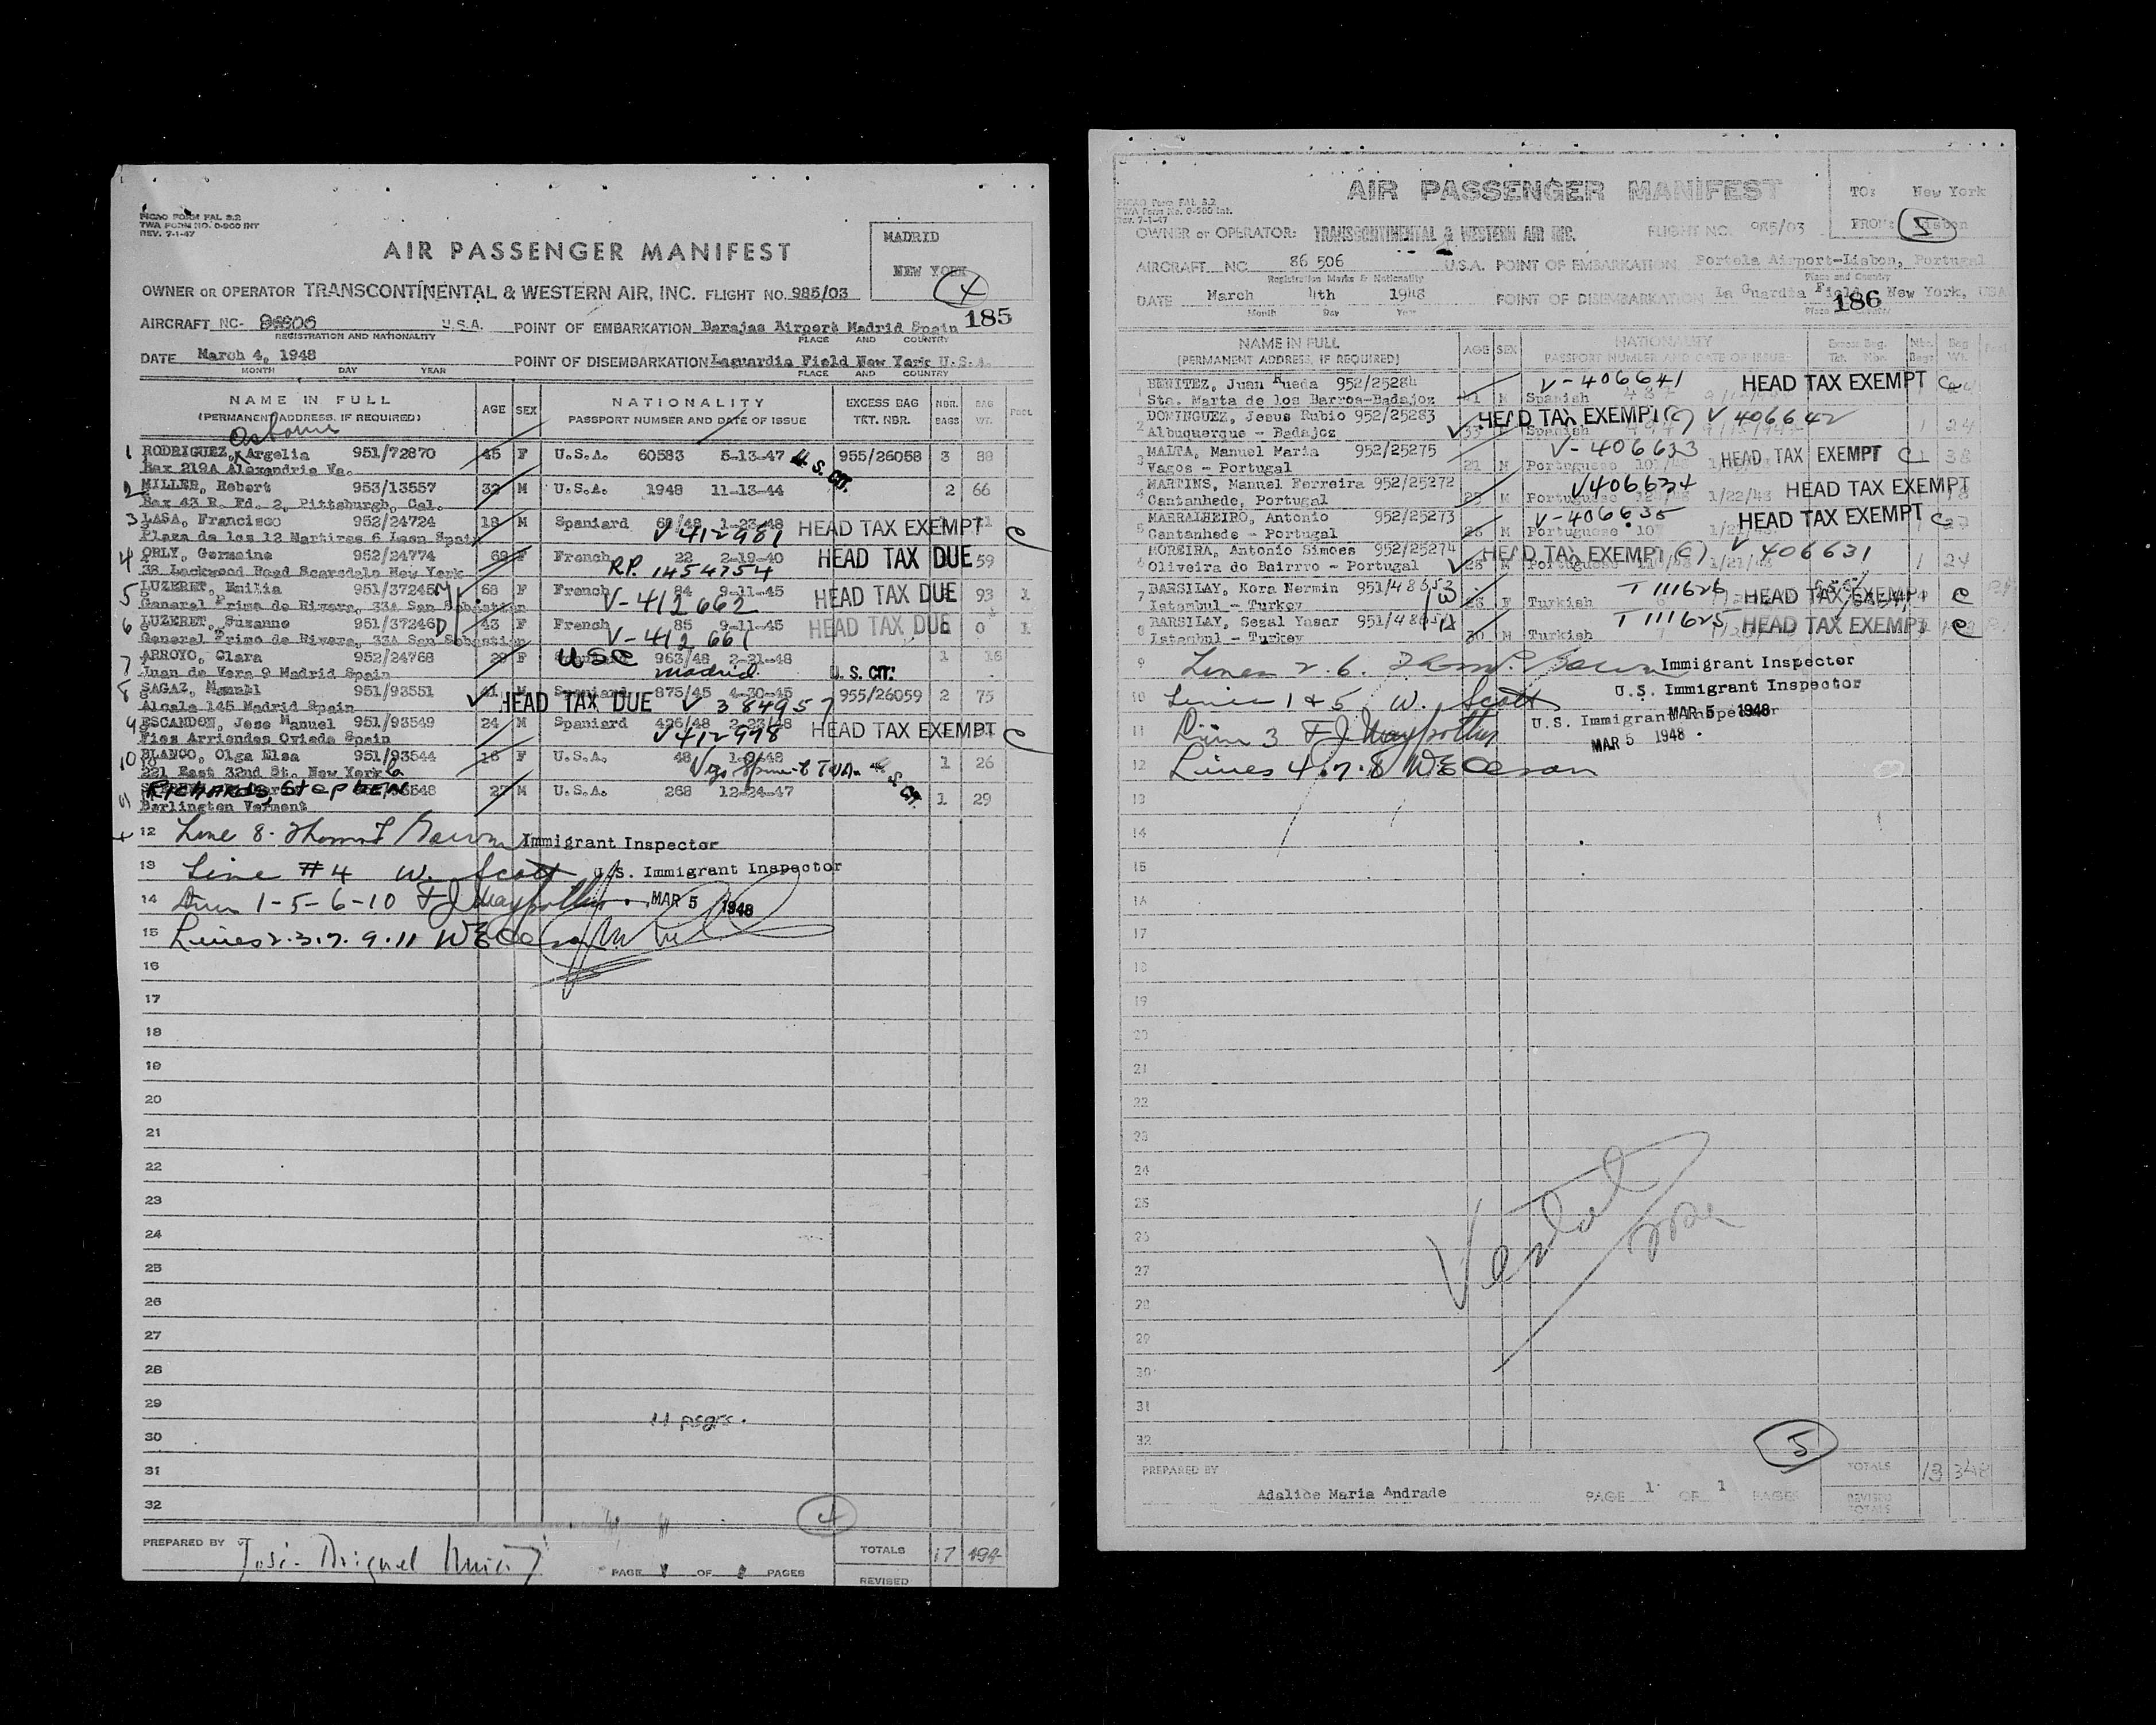 PICAO FORM FAL 3.2
TWA FORM NO. 0-900 INT
REV. 7-1-47
MADRID
NEW YORK
4
AIR PASSENGER MANIFEST
OWNER OR OPERATOR TRANSCONTINENTAL & WESTERN AIR, INC. FLIGHT NO. 985/03
AIRCRAFT NC- 86506 U.S.A. POINT OF EMBARKATION Barajas Airport Madrid Spain 185
REGISTRATION AND NATIONALITY PLACE AND COUNTRY
DATE March 4, 1948 POINT OF DISEMBARKATION Laguardia Field New York U.S.A.
MONTH DAY YEAR PLACE AND COUNTRY
NAME IN FULL AGE SEX NATIONALITY EXCESS BAG NBR. BAG POOL
(PERMANENT ADDRESS, IF REQUIRED) PASSPORT NUMBER AND DATE OF ISSUE TKT. NBR. BAGS WT.
Osborne
1 RODRIGUEZ, Argelia 951/72870 45 F U.S.A. 60583 5-13-47 U.S. CIT. 955/26058 3 88
Box 219A Alexandria Va.
2 MILLER, Robert 953/13557 32 M U.S.A. 1948 11-13-44 2 66
Box 43 R. Fd. 2, Pittsburgh, Cal.
3 LASA, Francisco 952/24724 18 M Spaniard 60/48 1-23-48 HEAD TAX EXEMPT C
Plaza de los 12 Martires 6 Lasn Spain V 412981
4 ORLY, Germaine 952/24774 69 F French 22 2-19-40 HEAD TAX DUE 59
38 Lockwood Road Scarsdale New York R.P. 1454754
5 LUZERET, Emilia 951/37245 M 68 F French 84 9-11-45 HEAD TAX DUE 93 1
General Primo de Rivera, 33A San Sebastian V-412662
6 LUZERET, Suzanne 951/37246 D 43 F French 85 9-11-45 HEAD TAX DUE 0 1
General Primo de Rivera, 33A San Sebastian V-412661
7 ARROYO, Clara 952/24768 29 F USC 963/48 2-21-48 1 16
Juan de Vera 9 Madrid Spain Madrid. U.S. CIT.
8 SAGAZ, Manuel 951/93551 41 M Spaniard 875/45 4-30-45 955/26059 2 75
Alcala 145 Madrid Spain HEAD TAX DUE V 384957
9 ESCANDON, Jose Manuel 951/93549 24 M Spaniard 426/48 2-23-48 HEAD TAX EXEMPT C
Fios Arriendas Oviedo Spain V 412998
10 BLANCO, Olga Elsa 951/93544 16 F U.S.A. 48 1-9-48 1 26
221 East 32nd St. New York U.S. CIT.
11 RICHARDS, Stephen 27 M U.S.A. 268 12-24-47 1 29
Burlington Vermont
12 Line 8. Thomas F Brown Immigrant Inspector
13 Line #4 W. Scott U.S. Immigrant Inspector
14 Lines 1-5-6-10 F J Maypother MAR 5 1948
15 Lines 2.3.7.9.11 W E Oleson
16
17
18
19
20
21
22
23
24
25
26
27
28
29 11 psgrs.
30
31
32
4
PREPARED BY José Miguel TOTALS 17 494
PAGE 1 OF 1 PAGES REVISED
AIR PASSENGER MANIFEST
TO: New York
PICAO Form FAL 3.2
TWA Form No. 0-900 Int.
Rev. 7-1-47
FROM: Lisbon 5
OWNER or OPERATOR: TRANSCONTINENTAL & WESTERN AIR INC. FLIGHT NO. 985/03
AIRCRAFT NC 86 506 U.S.A. POINT OF EMBARKATION Portela Airport-Lisbon, Portugal
Registration Marks & Nationality Place and Country
DATE March 4th 1948 POINT OF DISEMBARKATION La Guardia Field New York, USA
Month Day Year 186 Place and Country
NAME IN FULL AGE SEX NATIONALITY Excess Bag. Nbr. Bag Pool
(PERMANENT ADDRESS, IF REQUIRED) PASSPORT NUMBER AND DATE OF ISSUE Tkt. Nbr. Bags Wt.
1 BENITEZ, Juan Rueda 952/25284 41 M Spanish V-406641 HEAD TAX EXEMPT C
Sta. Marta de los Barros-Badajoz
2 DOMINGUEZ, Jesus Rubio 952/25283 33 Spanish HEAD TAX EXEMPT (C) V 406642 1 24
Albuquerque - Badajoz
3 MALTA, Manuel Maria 952/25275 21 M Portuguese V-406633 HEAD TAX EXEMPT C 1 38
Vagos - Portugal
4 MARTINS, Manuel Ferreira 952/25272 25 M Portuguese 1/22/48 V406634 HEAD TAX EXEMPT
Cantanhede, Portugal
5 MARRALHEIRO, Antonio 952/25273 26 M Portuguese V-406635 HEAD TAX EXEMPT C 27
Cantanhede - Portugal
6 MOREIRA, Antonio Simoes 952/25274 28 M Portuguese 1/21/48 HEAD TAX EXEMPT (C) V 406631 1 24
Oliveira do Bairrro - Portugal
7 BARSILAY, Kora Nermin 951/48653 W 26 F Turkish T 111626 HEAD TAX EXEMPT C
Istambul - Turkey
8 BARSILAY, Segal Yasar 951/48651 H 30 M Turkish T 111625 HEAD TAX EXEMPT C
Istanbul - Turkey
9 Lines 2.6. Thomas F. Brown Immigrant Inspector
10 Lines 1 & 5. W. Scott U.S. Immigrant Inspector
11 Line 3 F J Maypother U.S. Immigrant Inspector MAR 5 1948
MAR 5 1948
12 Lines 4.7.8 W E Oleson
13
14
15
16
17
18
19
20
21
22
23
24
25
26
27
28
29
30
31
32
5
PREPARED BY Adalice Maria Andrade PAGE 1 OF 1 PAGES TOTALS 13 348
REVISED TOTALS